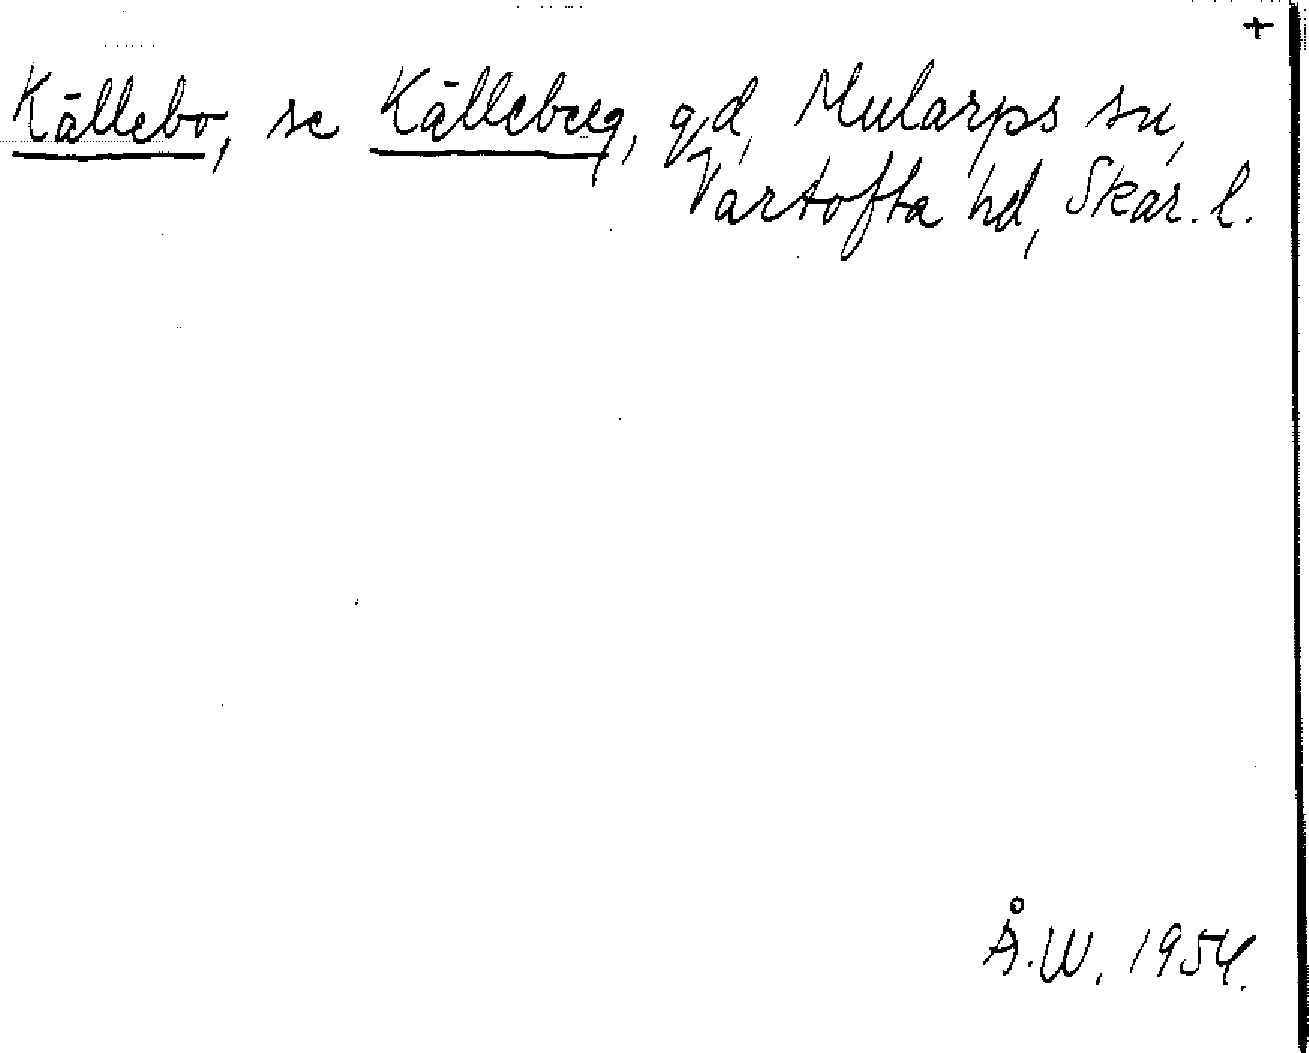 +
Källebo, se Källeberg, gd, Mularps sn,
Vartofta hd, Skar. l.
Å.W. 1954.